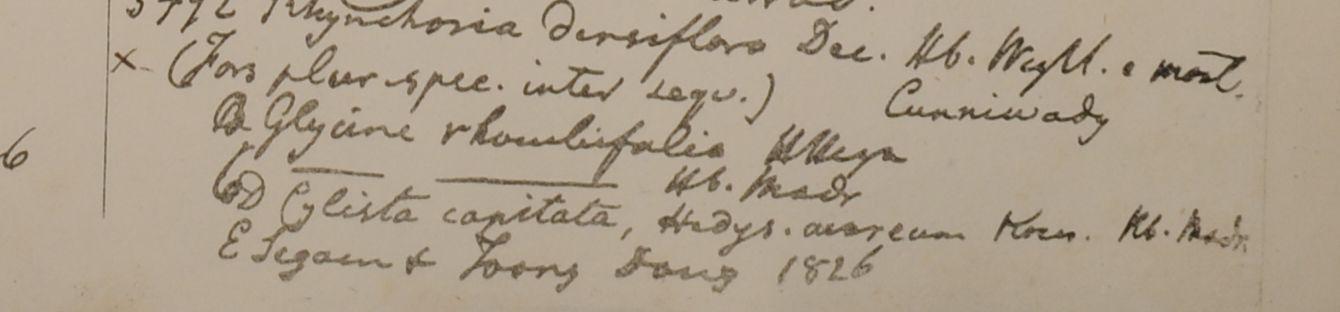 5492 Rhynchosia densiflora Dec. Hb. Wight. e mont.
x (Fors plur. spec. inter sequ.) Cunniwady
B Glycine rhombifolia
Hb. Madr
D Cylista capitata, Hedys. aureum Hb. Madr.
E Segaen & Toong Dong 1826
6